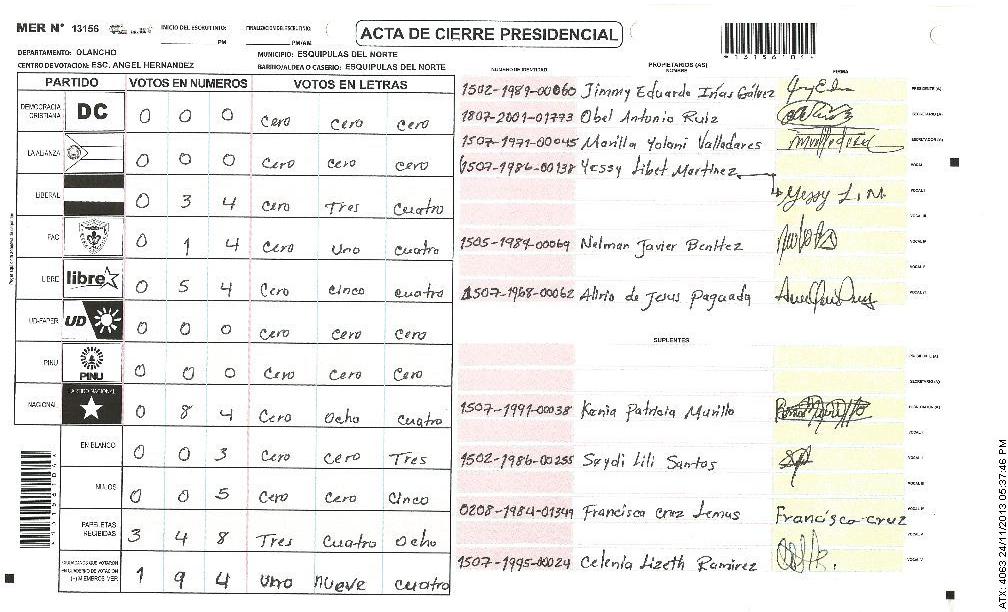 MER N° 13156 INICIO DEL ESCRUTINIO: PM FINALIZACION DEL ESCRUTINIO: PM/AM ACTA DE CIERRE PRESIDENCIAL
DEPARTAMENTO: OLANCHO MUNICIPIO: ESQUIPULAS DEL NORTE
CENTRO DE VOTACION: ESC. ANGEL HERNANDEZ BARRIO/ALDEA O CASERIO: ESQUIPULAS DEL NORTE
PARTIDO VOTOS EN NUMEROS VOTOS EN LETRAS
DEMOCRACIA CRISTIANA DC 0 0 0 Cero Cero Cero
LA ALIANZA 0 0 0 Cero Cero Cero
LIBERAL 0 3 4 Cero Tres Cuatro
PAC 0 1 4 Cero Uno Cuatro
LIBRE libre 0 5 4 Cero Cinco Cuatro
UD-FAPER UD 0 0 0 Cero Cero Cero
PINU PINU 0 0 0 Cero Cero Cero
NACIONAL PARTIDO NACIONAL 0 8 4 Cero Ocho Cuatro
EN BLANCO 0 0 3 Cero Cero Tres
NULOS 0 0 5 Cero Cero Cinco
PAPELETAS RECIBIDAS 3 4 8 Tres Cuatro Ocho
CIUDADANOS QUE VOTARON EN CUADERNO DE VOTACION (+) MIEMBROS MER 1 9 4 Uno nueve cuatro
NUMERO DE IDENTIDAD PROPIETARIOS (AS) NOMBRE FIRMA
1502-1989-00060 Jimmy Eduardo Irías Gálvez PRESIDENTE (A)
1807-2001-01773 Obel Antonio Ruiz SECRETARIO (A)
1507-1971-00045 Marilla Yolani Valladares ESCRUTADOR (A)
1507-1986-00138 Yessy Libet Martinez Yessy L. M VOCAL I
1505-1989-00069 Nelman Javier Benitez
1507-1968-00062 Alirio de Jesus Paguada
SUPLENTES
1507-1991-00038 Kenia Patricia Murillo
1502-1986-00255 Saydi Lili Santos
0208-1984-01349 Francisca Cruz Lemus Francisca Cruz
1507-1995-00024 Celenia Lizeth Ramirez
ATX: 4063 24/11/2013 05:37:46 PM